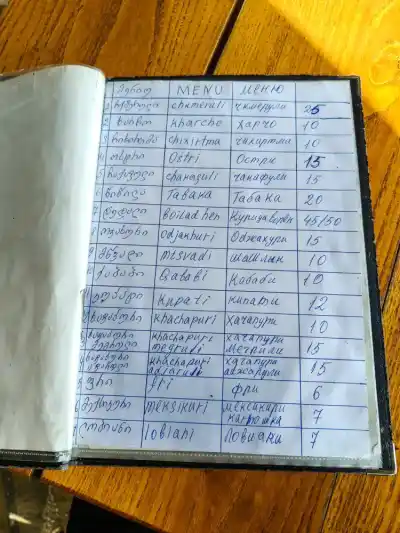 მენიუ MENU МЕНЮ
1 ჩქმერული chkmeruli чкмерули 25
2 ხარჩო kharcho Харчо 10
3 ჩიხირთმა chixirtma чихиртма 10
4 ოსტრი Ostri Остри 15
5 ჩაქაფული chanaguli чанафули 15
6 ტაბაკა Tabaka Табака 20
7 boiled hen Курица 45/50
8 ოჯახური odjakhuri Оджахури 15
9 მწვადი mtsvadi шашлик 10
10 ქაბაბი Qababi Кабаби 10
11 კუპატი Kupati купати 12
12 ხაჭაპური khachapuri Хачапури 10
13 ხაჭაპური მეგრული khachapuri megruli хачапури Мегрули 15
ხაჭაპური აჭარული khachapuri adjaruli хачапури аджарули 15
ფრი fri фри 6
მექსიკური meksikuri мексикари картошка 7
ლობიანი lobiani Ловиани 7